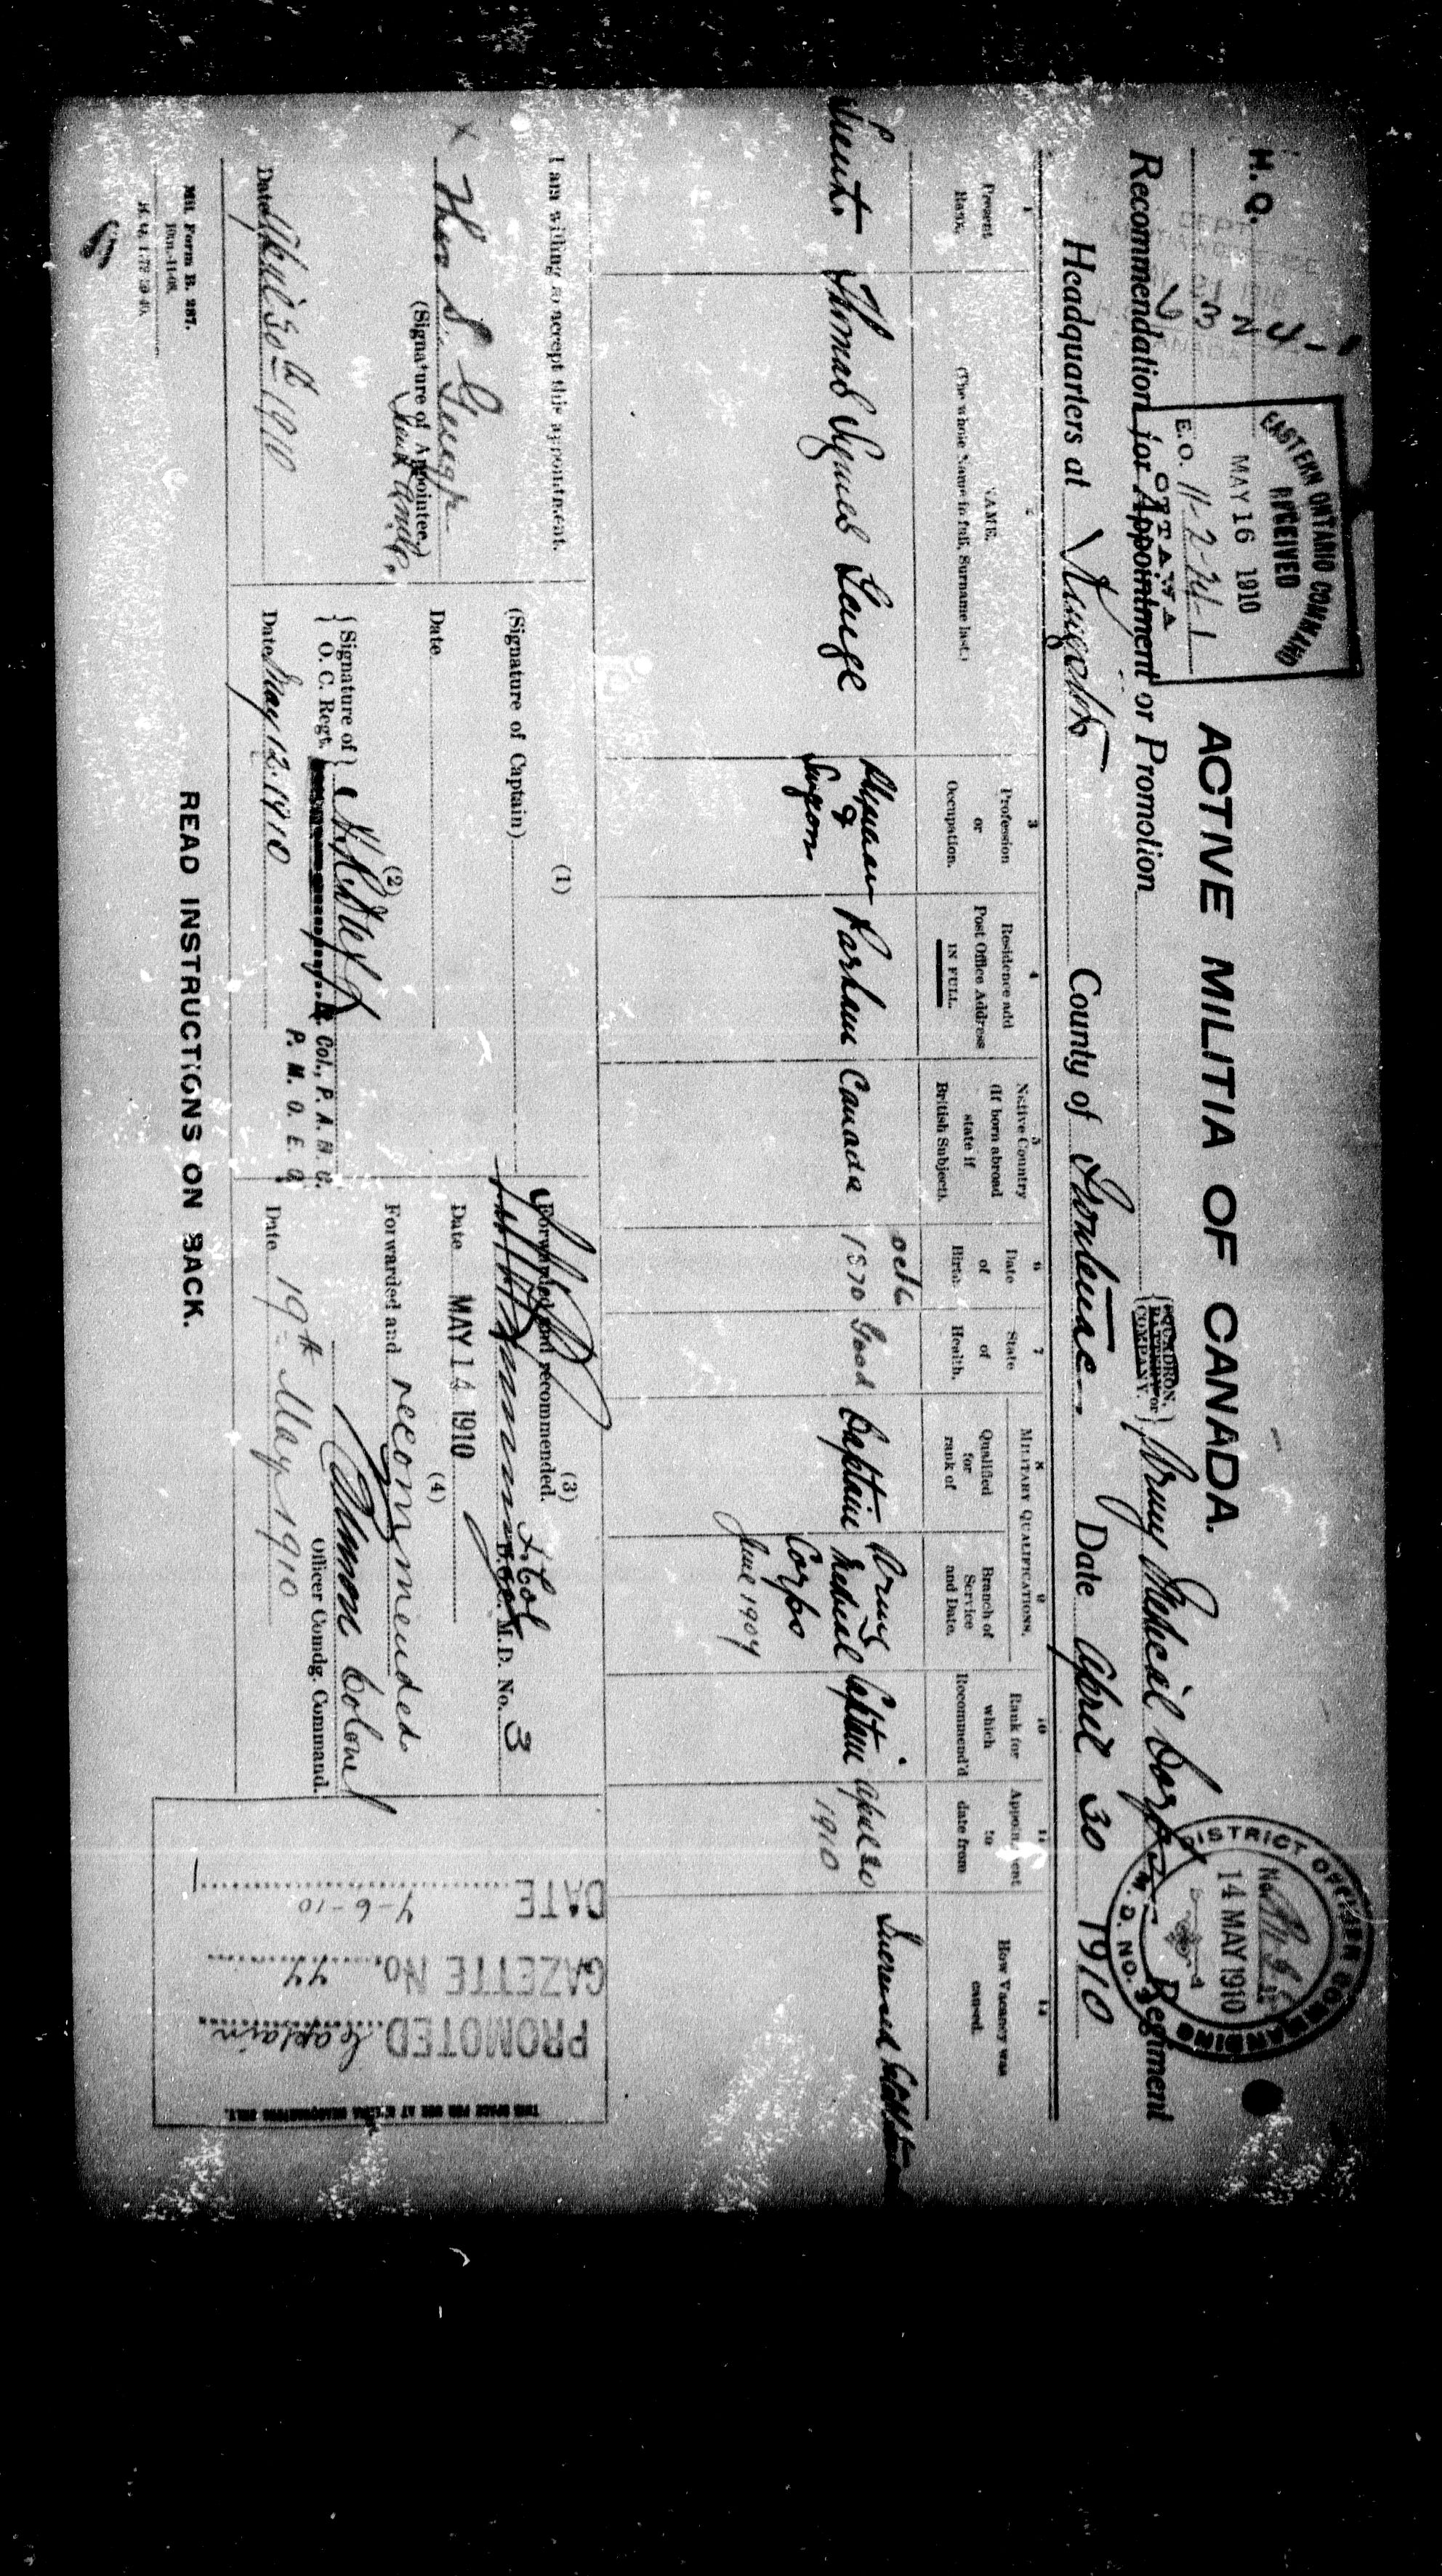 H. Q.
DEPT
CANADA
EASTERN ONTARIO COMMAND
RECEIVED
MAY 16 1910
E.O. 11-2-24-1
OTTAWA
ACTIVE MILITIA OF CANADA.
DISTRICT OFFICER COMMANDING
14 MAY 1910
M. D. NO. 3
Recommendation for Appointment or Promotion
{SQUADRON, BATTERY or COMPANY.} Army Medical Corps Regiment
Headquarters at County of Frontenac Date April 30 1910
1 Present Rank.
2 NAME. (The whole Name in full, Surname last.)
3 Profession or Occupation.
4 Residence and Post Office Address IN FULL.
5 Native Country (if born abroad state if British Subject).
6 Date of Birth.
7 State of Health.
MILITARY QUALIFICATIONS.
8 Qualified for rank of
9 Branch of Service and Date.
10 Rank for which Recommend'd
11 Appointment to date from
12 How Vacancy was caused.
Lieut. Thomas George
& Surgeon
Parham
Canada
Oct 6 1870
Good
Captain
Army Medical Corps
June 1909
Captain
April 30 1910
Increased
I am willing to accept this appointment.
x Thos S. George
(Signature of Appointee.)
Date April 30th 1910
(1)
(Signature of Captain)
Date
(2)
{Signature of O. C. Regt.}
Col., P. A. M. C.
P. M. O. E. O.
Date May 12. 1910
(3)
Forwarded and recommended.
Lt Col
D.O.C. M.D. No. 3
Date MAY 14 1910
(4)
Forwarded and recommended
Colonel
Officer Comdg. Command.
Date 19th May 1910
THIS SPACE FOR USE AT HEADQUARTERS ONLY.
PROMOTED Captain
GAZETTE No. 77
DATE 7-6-10
Mil. Form B. 287.
READ INSTRUCTIONS ON BACK.